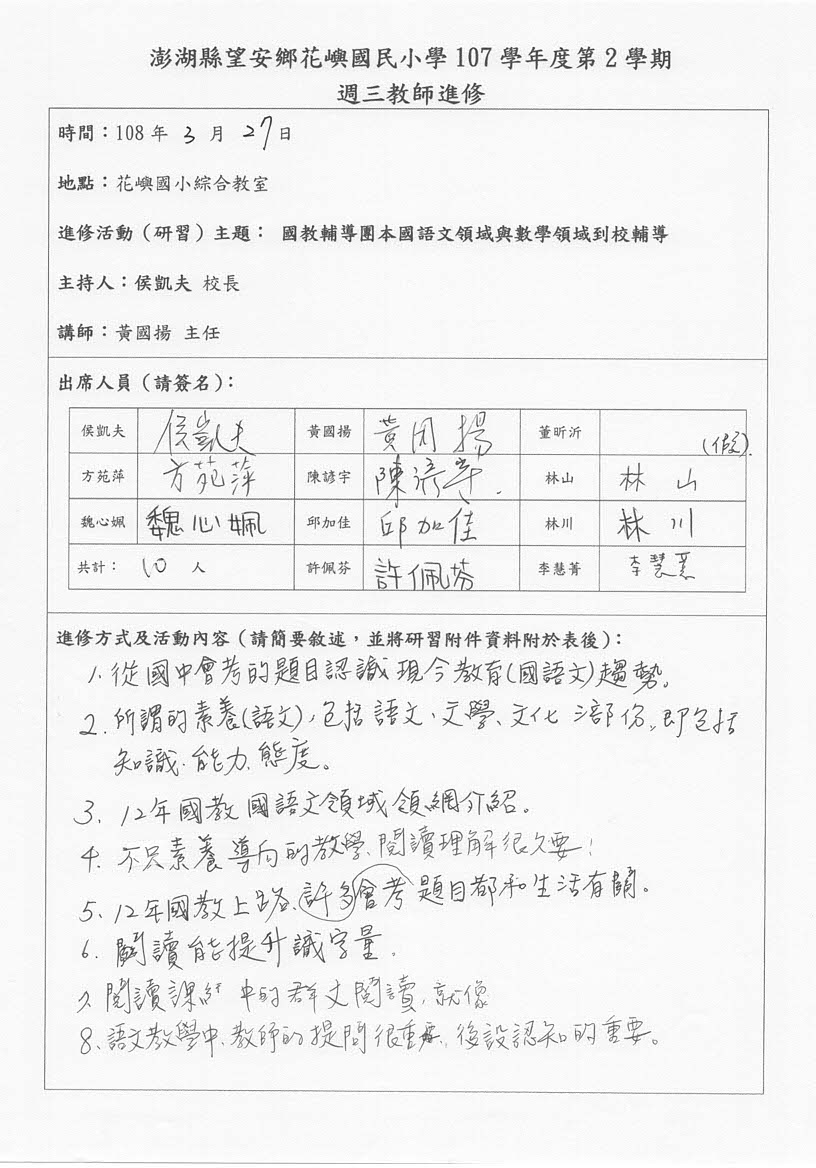 澎湖縣望安鄉花嶼國民小學107學年度第2學期
週三教師進修
時間：108年 3 月 27 日
地點：花嶼國小綜合教室
進修活動（研習）主題： 國教輔導團本國語文領域與數學領域到校輔導
主持人：侯凱夫 校長
講師：黃國揚 主任
出席人員（請簽名）：
侯凱夫 侯凱夫 黃國揚 黃國揚 董昕沂 (假)
方苑萍 方苑萍 陳諺宇 陳諺宇 林山 林山
魏心姵 魏心姵 邱加佳 邱加佳 林川 林川
共計： 10 人 許佩芬 許佩芬 李慧菁 李慧菁
進修方式及活動內容（請簡要敘述，並將研習附件資料附於表後）：
1. 從國中會考的題目認識現今教育(國語文)趨勢。
2. 所謂的素養(語文)，包括語文、文學、文化三部份，即包括
知識、能力、態度。
3. 12年國教國語文領域領綱介紹。
4. 不只素養導向的教學、閱讀理解很要！
5. 12年國教上路、許多會考題目都和生活有關。
6. 閱讀能提升識字量。
7. 閱讀課 中的群文閱讀，就像
8. 語文教學中、教師的提問很重要，後設認知的重要。